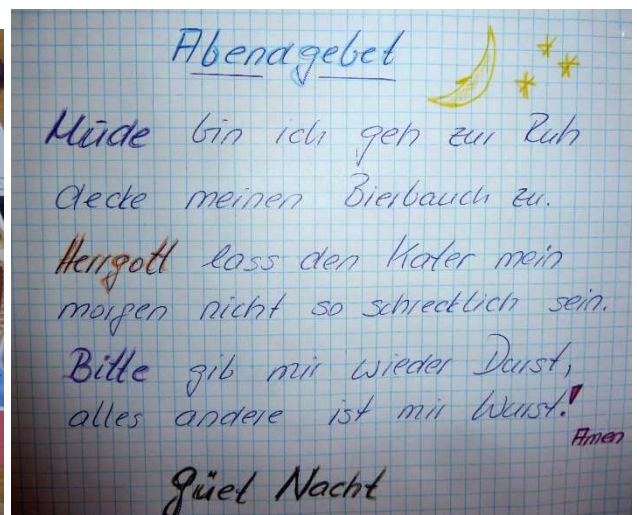 Abendgebet
Müde bin ich geh zur Ruh
decke meinen Bierbauch zu.
Herrgott lass den Kater mein
morgen nicht so schrecklich sein.
Bitte gib mir wieder Durst,
alles andere ist mir Wurst!
Amen
Güet Nacht